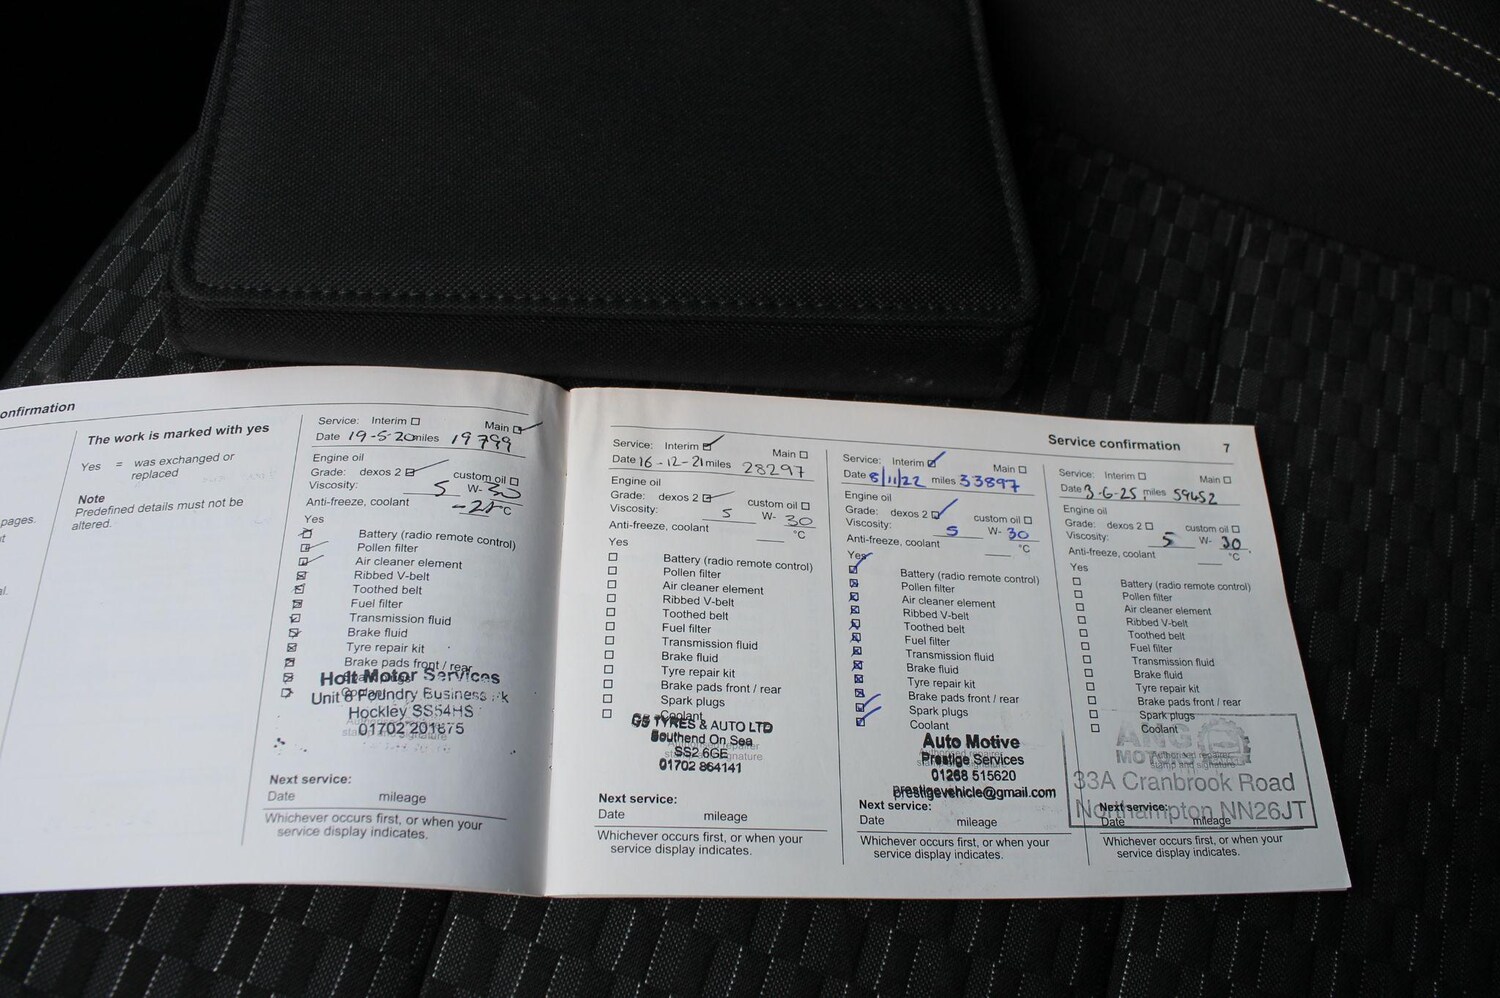 onfirmation
pages.
The work is marked with yes
Yes = was exchanged or
replaced
Note
Predefined details must not be
altered.
Service: Interim Main
Date 19-5-20 miles 19799
Engine oil
Grade: dexos 2 custom oil
Viscosity: 5 W- 30
Anti-freeze, coolant °C
Yes
Battery (radio remote control)
Pollen filter
Air cleaner element
Ribbed V-belt
Toothed belt
Fuel filter
Transmission fluid
Brake fluid
Tyre repair kit
Brake pads front / rear
Holt Motor Services
Unit 6 Foundry Business
Hockley SS54HS
01702 201675
Next service:
Date mileage
Whichever occurs first, or when your
service display indicates.
Service confirmation 7
Service: Interim Main
Date 16-12-21 miles 28297
Engine oil
Grade: dexos 2 custom oil
Viscosity: 5 W- 30
Anti-freeze, coolant °C
Yes
Battery (radio remote control)
Pollen filter
Air cleaner element
Ribbed V-belt
Toothed belt
Fuel filter
Transmission fluid
Brake fluid
Tyre repair kit
Brake pads front / rear
Spark plugs
Coolant
G5 TYRES & AUTO LTD
Southend On Sea
SS2 6GE
01702 864141
Next service:
Date mileage
Whichever occurs first, or when your
service display indicates.
Service: Interim Main
Date 8/11/22 miles 33897
Engine oil
Grade: dexos 2 custom oil
Viscosity: 5 W- 30
Anti-freeze, coolant °C
Yes
Battery (radio remote control)
Pollen filter
Air cleaner element
Ribbed V-belt
Toothed belt
Fuel filter
Transmission fluid
Brake fluid
Tyre repair kit
Brake pads front / rear
Spark plugs
Coolant
Auto Motive
Prestige Services
01268 515620
prestigevehicle@gmail.com
Next service:
Date mileage
Whichever occurs first, or when your
service display indicates.
Service: Interim Main
Date 3-6-25 miles 59452
Engine oil
Grade: dexos 2 custom oil
Viscosity: 5 W- 30
Anti-freeze, coolant °C
Yes
Battery (radio remote control)
Pollen filter
Air cleaner element
Ribbed V-belt
Toothed belt
Fuel filter
Transmission fluid
Brake fluid
Tyre repair kit
Brake pads front / rear
Spark plugs
Coolant
ANG
Authorised repairer
stamp and signature
33A Cranbrook Road
Northampton NN26JT
Next service:
Date mileage
Whichever occurs first, or when your
service display indicates.